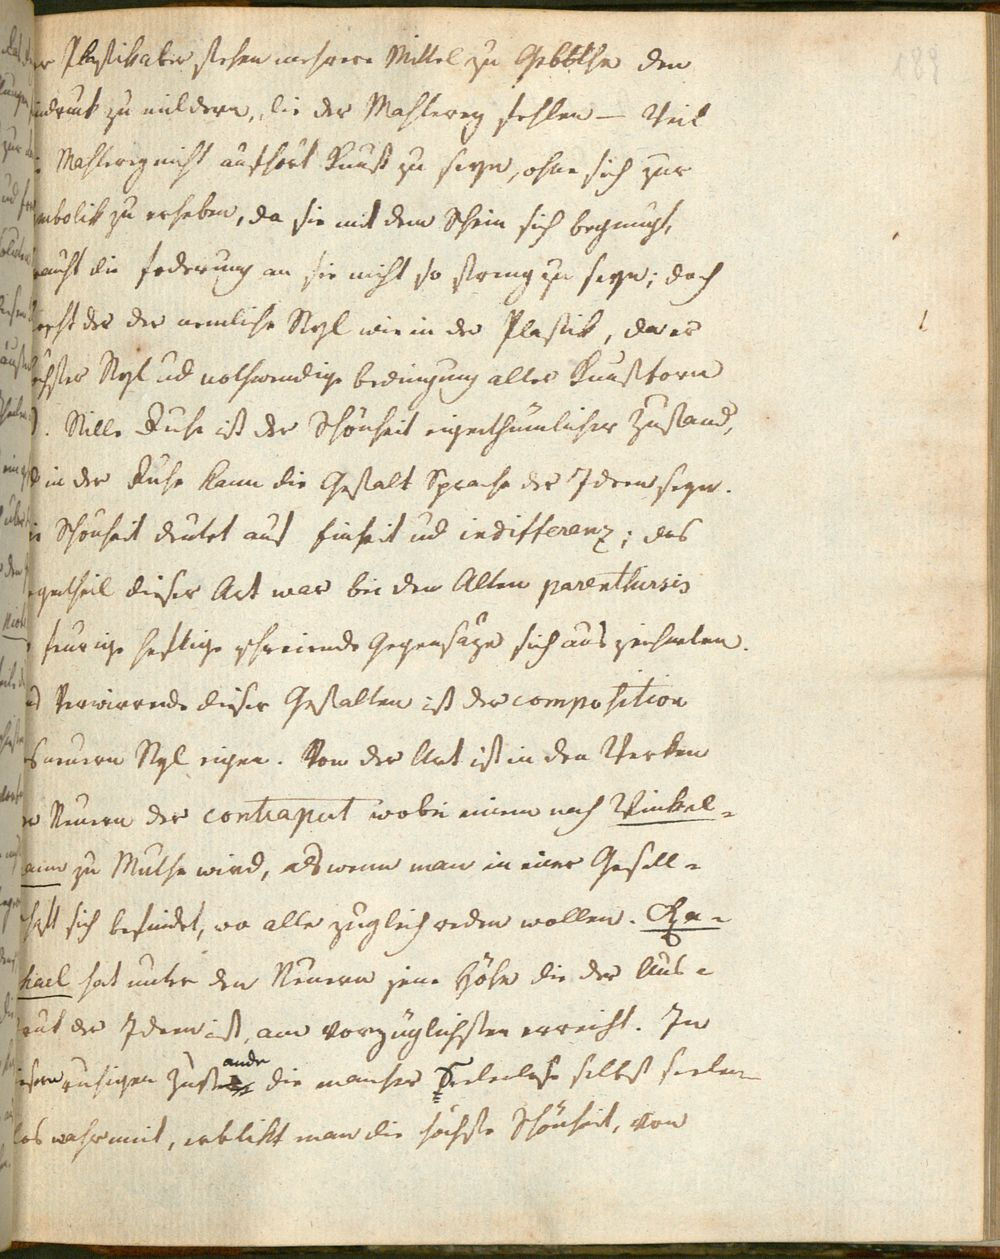 Plastik aber stehen mehrere Mittel zu Gebothe den
Eindruck zu mildern, die der Mahlerey fehlen — Weil
Mahlerey nicht aufhört Kunst zu seyn, ohne sich zur
Symbolik zu erheben, da sie mit dem Schein sich begnügt,
braucht die foderung an sie nicht so streng zu seyn; doch
der nemliche Styl wie in der Plastik, da er
höchster Styl ud nothwendige bedingung aller Kunstform
. Stille Ruhe ist der Schönheit eigenthümlicher Zustand,
in der Ruhe kann die Gestalt Sprache der Ideen seyn.
Schönheit deutet auf Einheit ud indifferenz; das
Gegentheil dieser Art war bei den Alten parenthirsis
feurige heftige schreiende Gegensäze sich auszeichneten.
Verwirrende dieser Gestalten ist der composition
neuern Styl eigen. Von der Art ist in den Werken
Neuern der contrapost wobei einem nach Winkel-
mann zu Muthe wird, als wenn man in einer Gesell-
schaft sich befindet, wo alle zugleich reden wollen. Ra-
phael hat unter den Neuern jene Höhe die der Aus-
druk der Ideen ist, am vorzüglichsten erreicht. In
diesem ruhigen Zustande die mancher Seelenlose selbst seelen-
los wahrnimt, erblikt man die höchste Schönheit, von
189